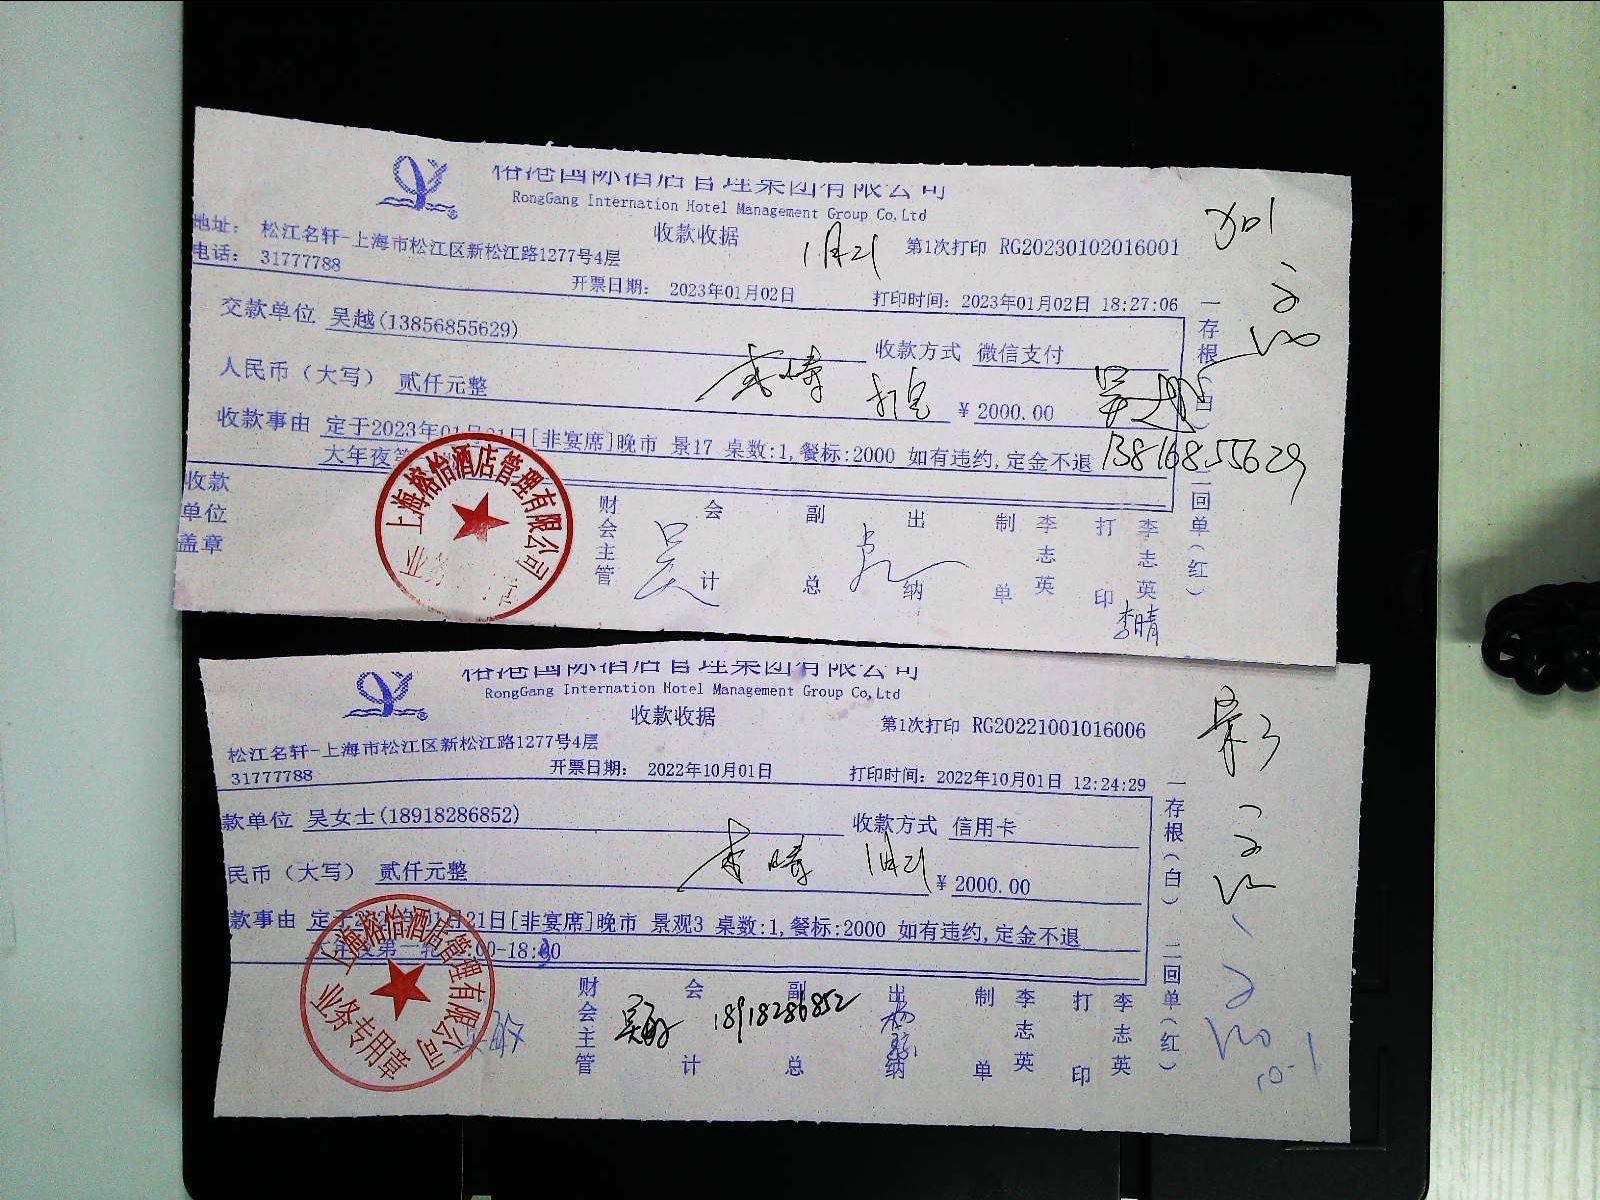 榕港国际酒店管理集团有限公司
RongGang Internation Hotel Management Group Co,Ltd
收款收据
1月21
第1次打印 RG20230102016001
地址： 松江名轩-上海市松江区新松江路1277号4层
电话： 31777788
开票日期： 2023年01月02日
打印时间：2023年01月02日 18:27:06
交款单位 吴越(13856855629)
收款方式 微信支付
人民币（大写） 贰仟元整
李晴
¥ 2000.00
吴越
收款事由 定于2023年01月21日[非宴席]晚市 景17 桌数:1,餐标:2000 如有违约,定金不退
13816855629
大年夜第
收款单位盖章
上海榕怡酒店管理有限公司
业务专用章
财会主管 会计 副总 出纳 制单 李志英 打印 李志英
吴
李晴
一存根（白） 二回单（红）
榕港国际酒店管理集团有限公司
RongGang Internation Hotel Management Group Co,Ltd
收款收据
第1次打印 RG20221001016006
松江名轩-上海市松江区新松江路1277号4层
31777788
开票日期： 2022年10月01日
打印时间：2022年10月01日 12:24:29
款单位 吴女士(18918286852)
收款方式 信用卡
民币（大写） 贰仟元整
李晴
1月21
¥ 2000.00
款事由 定于2023年01月21日[非宴席]晚市 景观3 桌数:1,餐标:2000 如有违约,定金不退
00-18:30
上海榕怡酒店管理有限公司
业务专用章
财会主管 会计 副总 出纳 制单 李志英 打印 李志英
吴敏 18918286852
一存根（白） 二回单（红）
景3
10-1